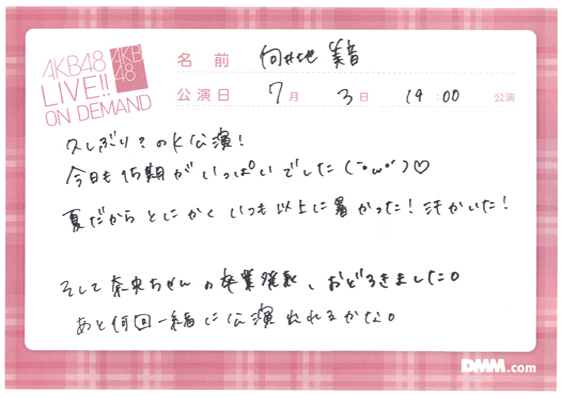 AKB48
LIVE!!
ON DEMAND
AKB
48
名前 向井地 美音
公演日 7月 3日 19:00 公演
久しぶり?のK公演!
今日も15期がいっぱいでした(´・ω・`)♡
夏だからとにかくいつも以上に暑かった!汗かいた!
そして奈央ちゃんの卒業発表、おどろきました。
あと何回一緒に公演出れるかな。
DMM.com